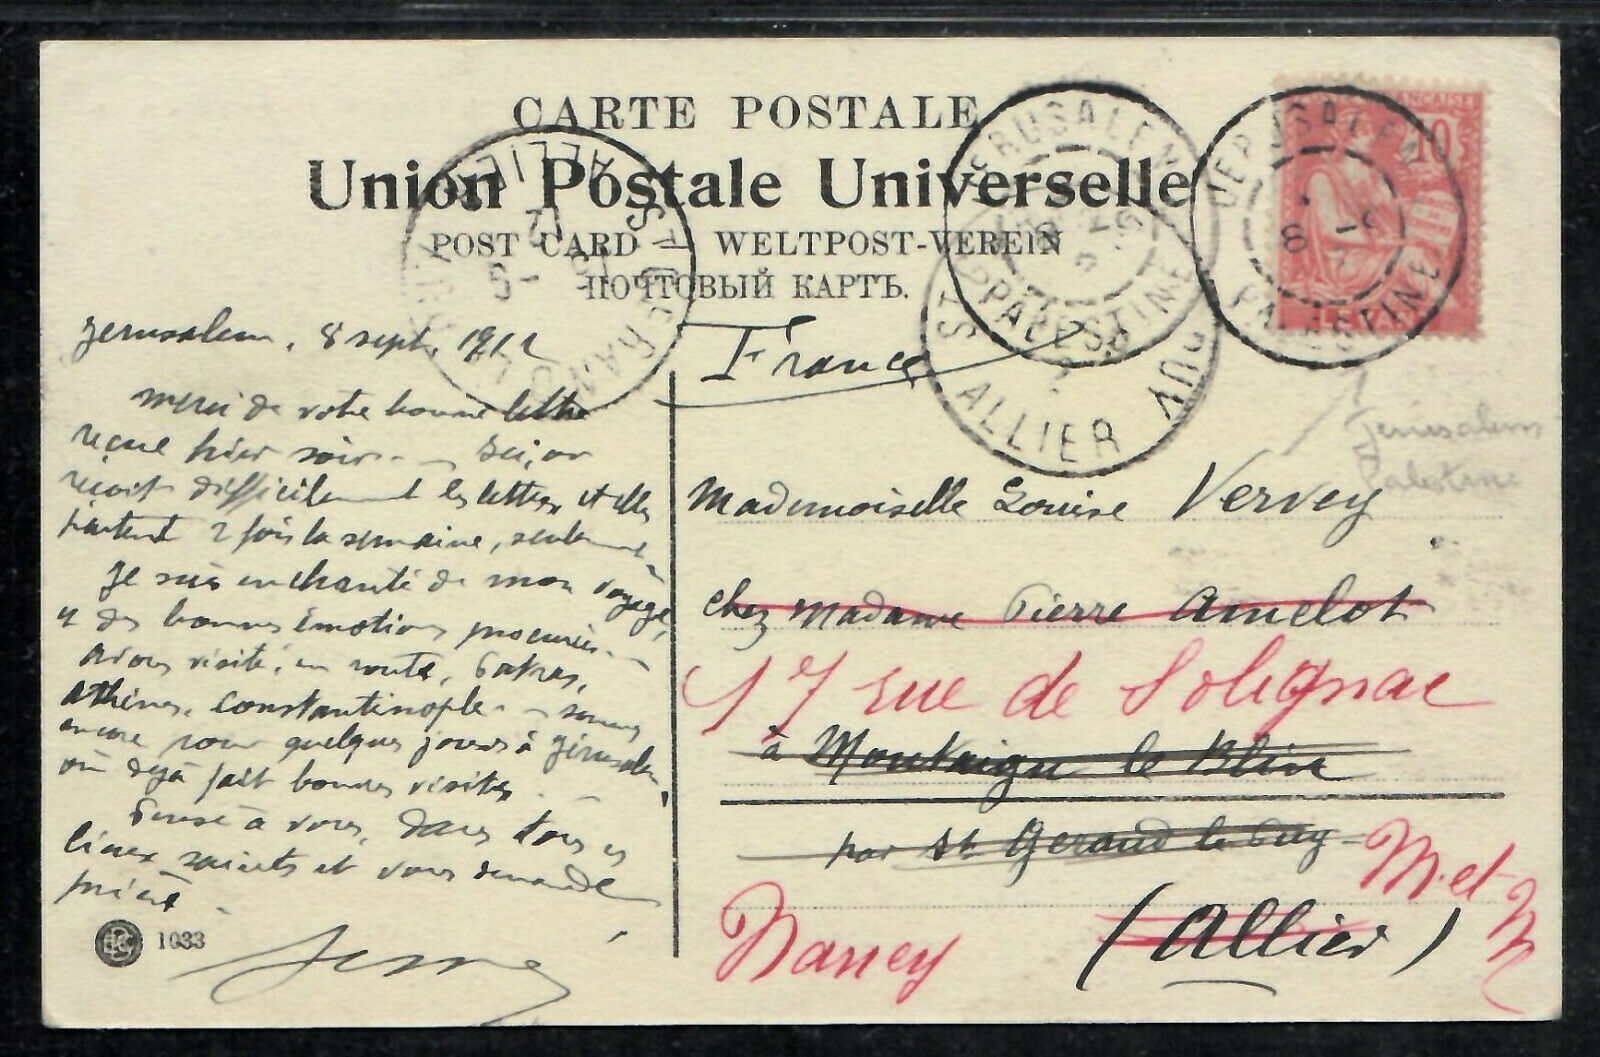 CARTE POSTALE
Union Postale Universelle
POST CARD — WELTPOST-VEREIN
ПОЧТОВЫЙ КАРТЪ.
JERUSALEM PALESTINE
JERUSALEM PALESTINE
10
ALLIER
Jerusalem, 8 sept. 1912
merci de votre bonne lettre
reçue hier soir. — Ici, on
reçoit difficilement les lettres et elles
partent 2 fois la semaine, seulement
Je suis enchanté de mon voyage,
des bonnes émotions procurées. —
avons visité, en route, Patras,
Athènes, Constantinople — sommes
encore pour quelques jours à Jérusalem,
où déjà fait bonnes visites —
Pense à vous, dans tous ces
lieux saints et vous demande
prière.
1033
France
Jerusalem
Palestine
Mademoiselle Louise Vervey
chez Madame Pierre Amelot
17 rue de Solignac
à Montaigu le Blin
par St Gerand le Puy
Nancy
(Allier)
M. et M